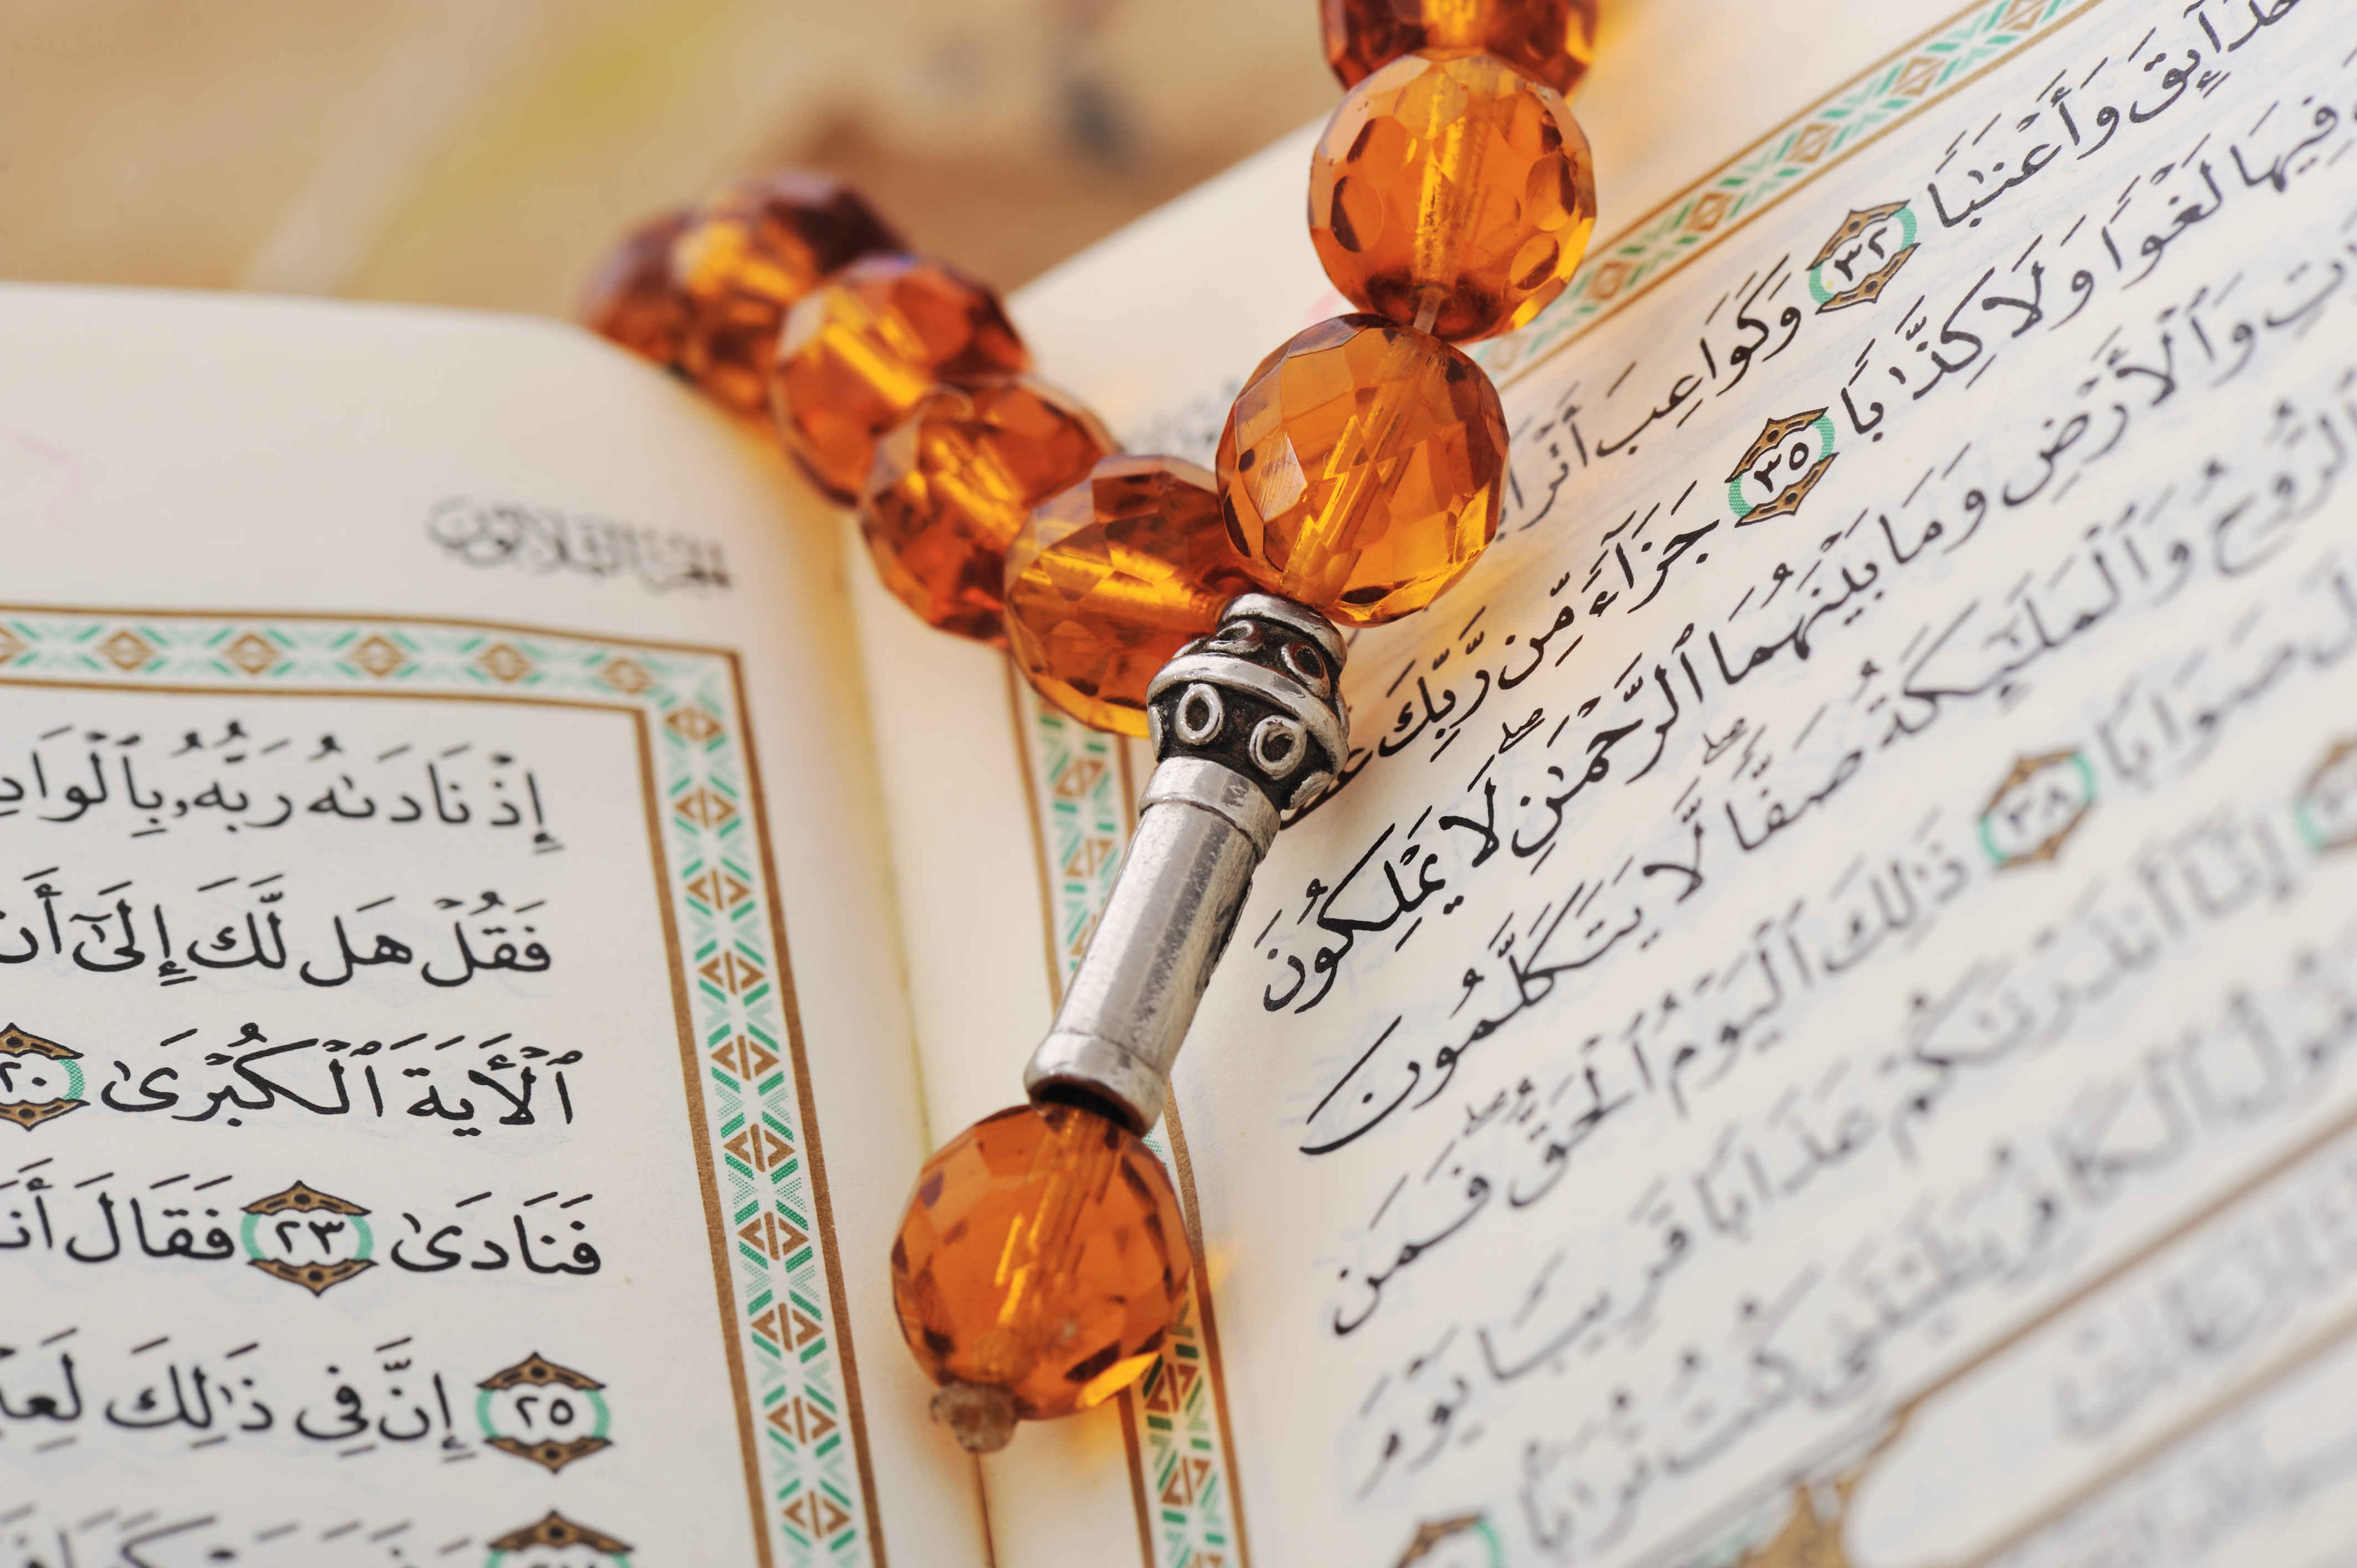 حَدَآئِقَ وَأَعْنَٰبًا ٣٢ وَكَوَاعِبَ أَتْرَابًا
فِيهَا لَغْوًا وَلَا كِذَّٰبًا ٣٥ جَزَآءً مِّن رَّبِّكَ
وَٱلْأَرْضِ وَمَا بَيْنَهُمَا ٱلرَّحْمَٰنِ ۖ لَا يَمْلِكُونَ
ٱلرُّوحُ وَٱلْمَلَٰٓئِكَةُ صَفًّا ۖ لَّا يَتَكَلَّمُونَ
صَوَابًا ٣٨ ذَٰلِكَ ٱلْيَوْمُ ٱلْحَقُّ ۖ فَمَن
إِنَّآ أَنذَرْنَٰكُمْ عَذَابًا قَرِيبًا يَوْمَ
وَيَقُولُ ٱلْكَافِرُ يَٰلَيْتَنِى كُنتُ تُرَٰبًۢا
الجزء الثلاثون
إِذْ نَادَىٰهُ رَبُّهُۥ بِٱلْوَادِ
فَقُلْ هَل لَّكَ إِلَىٰٓ أَن
ٱلْأٓيَةَ ٱلْكُبْرَىٰ ٢٠
فَنَادَىٰ ٢٣ فَقَالَ أَنَا۠
٢٥ إِنَّ فِى ذَٰلِكَ